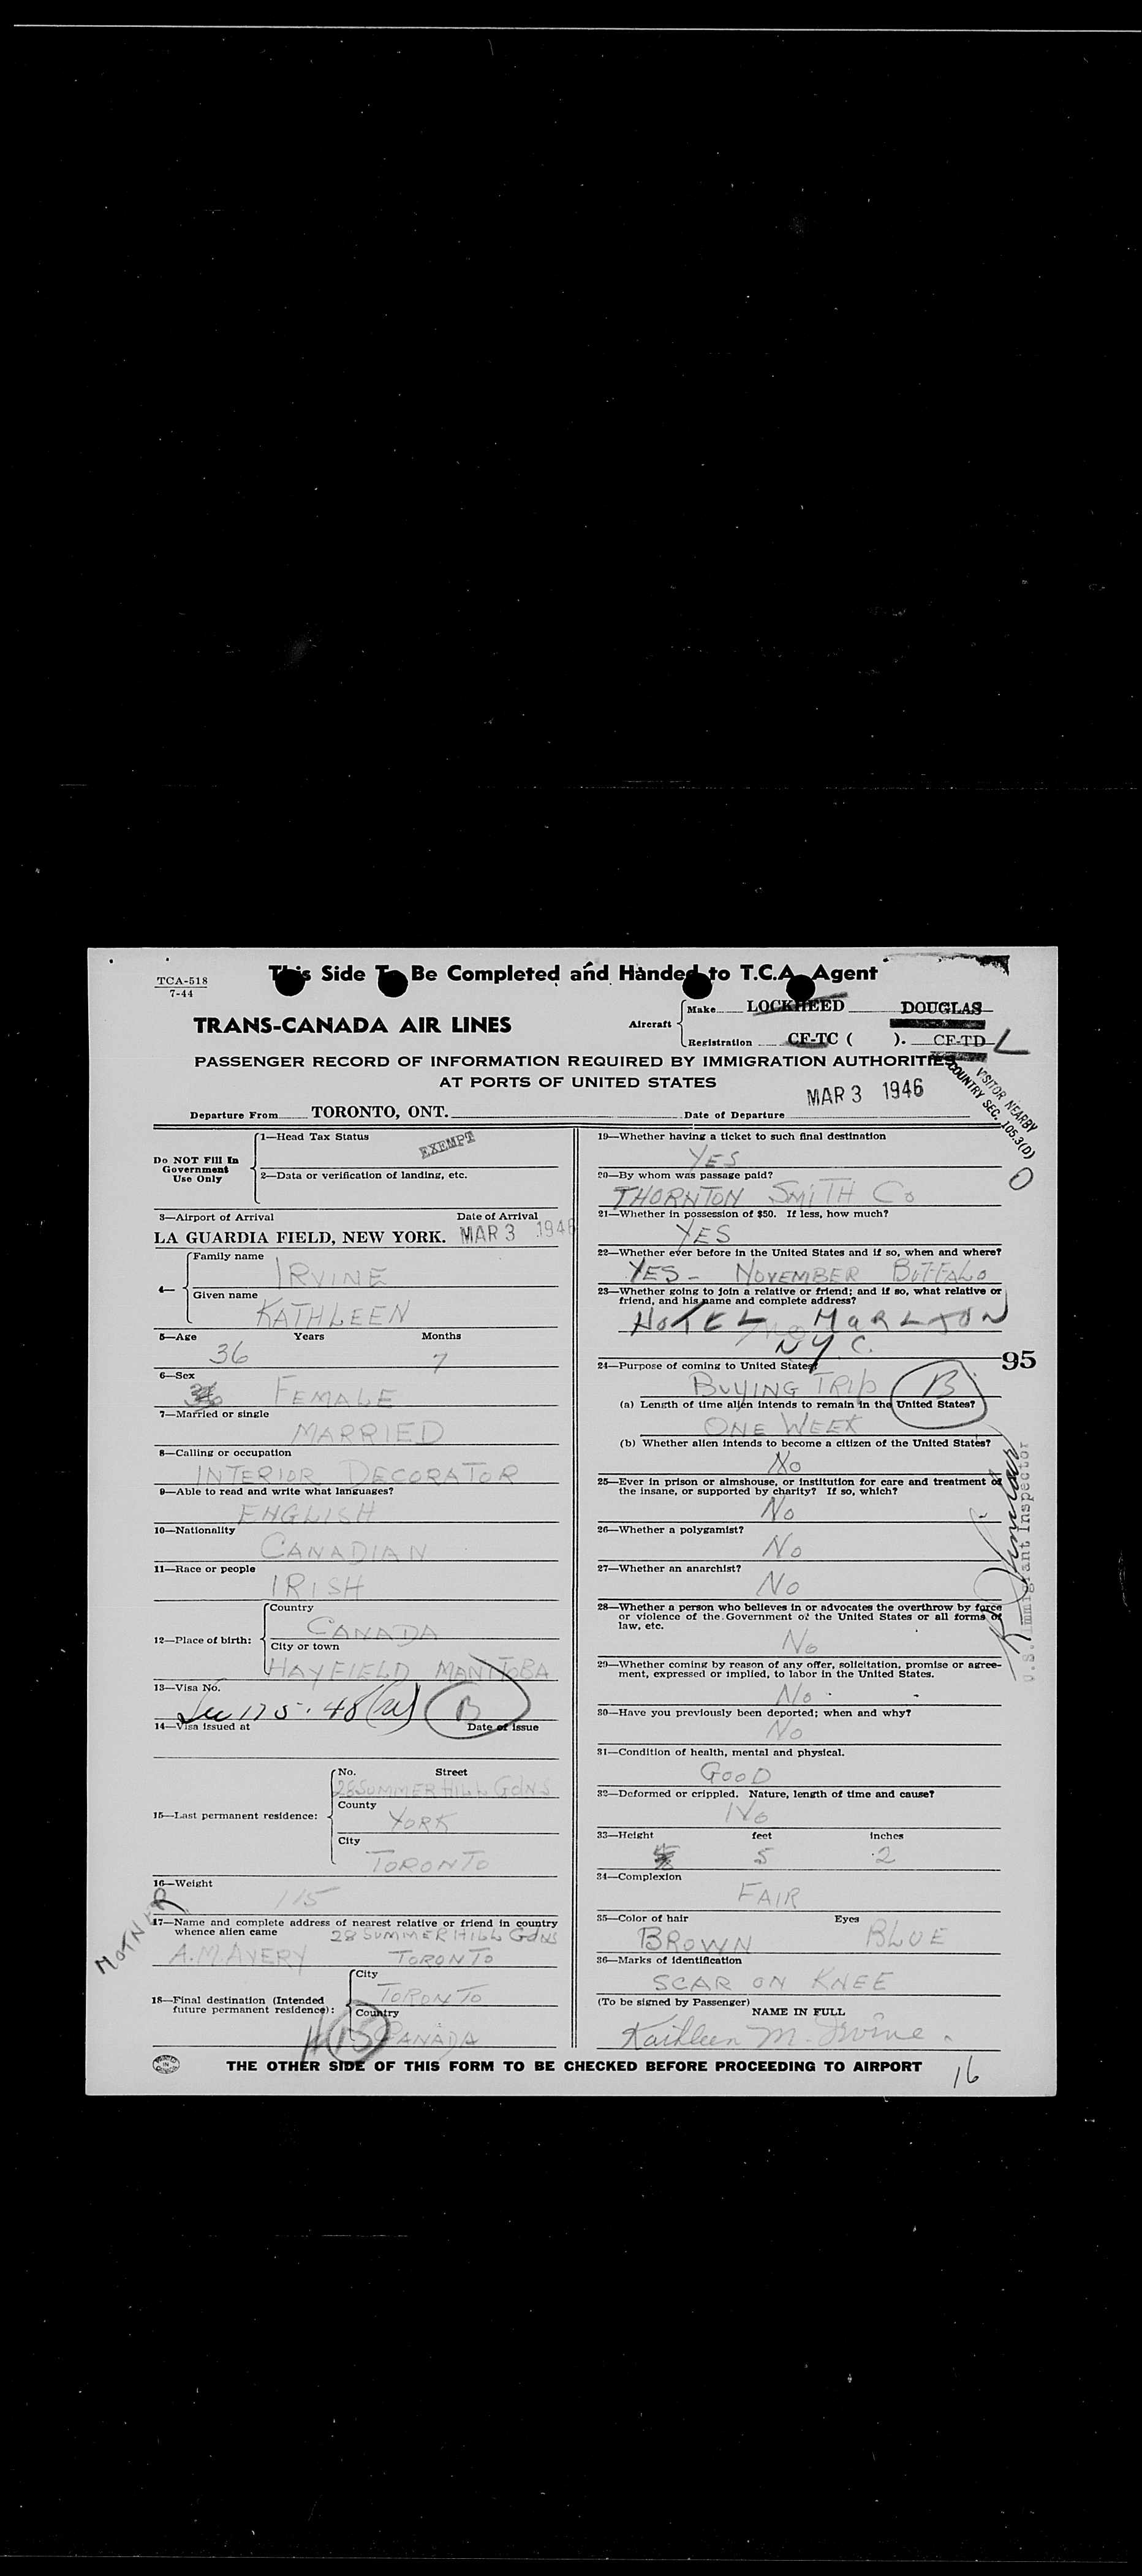 This Side To Be Completed and Handed to T.C.A. Agent
TCA-518
7-44
TRANS-CANADA AIR LINES
Aircraft
Make LOCKHEED DOUGLAS
Registration CF-TC ( ). CF-TD L
PASSENGER RECORD OF INFORMATION REQUIRED BY IMMIGRATION AUTHORITIES
AT PORTS OF UNITED STATES
VISITOR NEARBY
COUNTRY SEC. 105.3(D)
MAR 3 1946
Departure From TORONTO, ONT. Date of Departure
Do NOT Fill In
Government
Use Only
1—Head Tax Status
EXEMPT
2—Data or verification of landing, etc.
3—Airport of Arrival Date of Arrival
LA GUARDIA FIELD, NEW YORK. MAR 3 1946
4—
Family name
IRVINE
Given name
KATHLEEN
5—Age Years Months
36 7
6—Sex
FEMALE
7—Married or single
MARRIED
8—Calling or occupation
INTERIOR DECORATOR
9—Able to read and write what languages?
ENGLISH
10—Nationality
CANADIAN
11—Race or people
IRISH
12—Place of birth:
Country
CANADA
City or town
HAYFIELD MANITOBA
13—Visa No.
B
14—Visa issued at Date of issue
15—Last permanent residence:
No. Street
28 SUMMERHILL GDNS
County
YORK
City
TORONTO
16—Weight
115
MOTHER
17—Name and complete address of nearest relative or friend in country
whence alien came 28 SUMMERHILL GDNS
A.M AVERY TORONTO
18—Final destination (Intended
future permanent residence):
City
TORONTO
Country
CANADA
19—Whether having a ticket to such final destination
YES
O
20—By whom was passage paid?
THORNTON SMITH Co
21—Whether in possession of $50. If less, how much?
YES
22—Whether ever before in the United States and if so, when and where?
YES - NOVEMBER BUFFALO
23—Whether going to join a relative or friend; and if so, what relative or
friend, and his name and complete address?
HOTEL MARLTON
N.Y.C.
95
24—Purpose of coming to United States?
BUYING TRIP B
(a) Length of time alien intends to remain in the United States?
ONE WEEK
(b) Whether alien intends to become a citizen of the United States?
No
25—Ever in prison or almshouse, or institution for care and treatment of
the insane, or supported by charity? If so, which?
No
26—Whether a polygamist?
No
27—Whether an anarchist?
No
28—Whether a person who believes in or advocates the overthrow by force
or violence of the Government of the United States or all forms of
law, etc.
No
29—Whether coming by reason of any offer, solicitation, promise or agree-
ment, expressed or implied, to labor in the United States.
No
30—Have you previously been deported; when and why?
No
31—Condition of health, mental and physical.
GOOD
32—Deformed or crippled. Nature, length of time and cause?
No
33—Height feet inches
5 2
34—Complexion
FAIR
35—Color of hair Eyes
BROWN BLUE
36—Marks of identification
SCAR ON KNEE
(To be signed by Passenger)
NAME IN FULL
Kathleen M. Irvine.
U.S. Immigrant Inspector
THE OTHER SIDE OF THIS FORM TO BE CHECKED BEFORE PROCEEDING TO AIRPORT
16